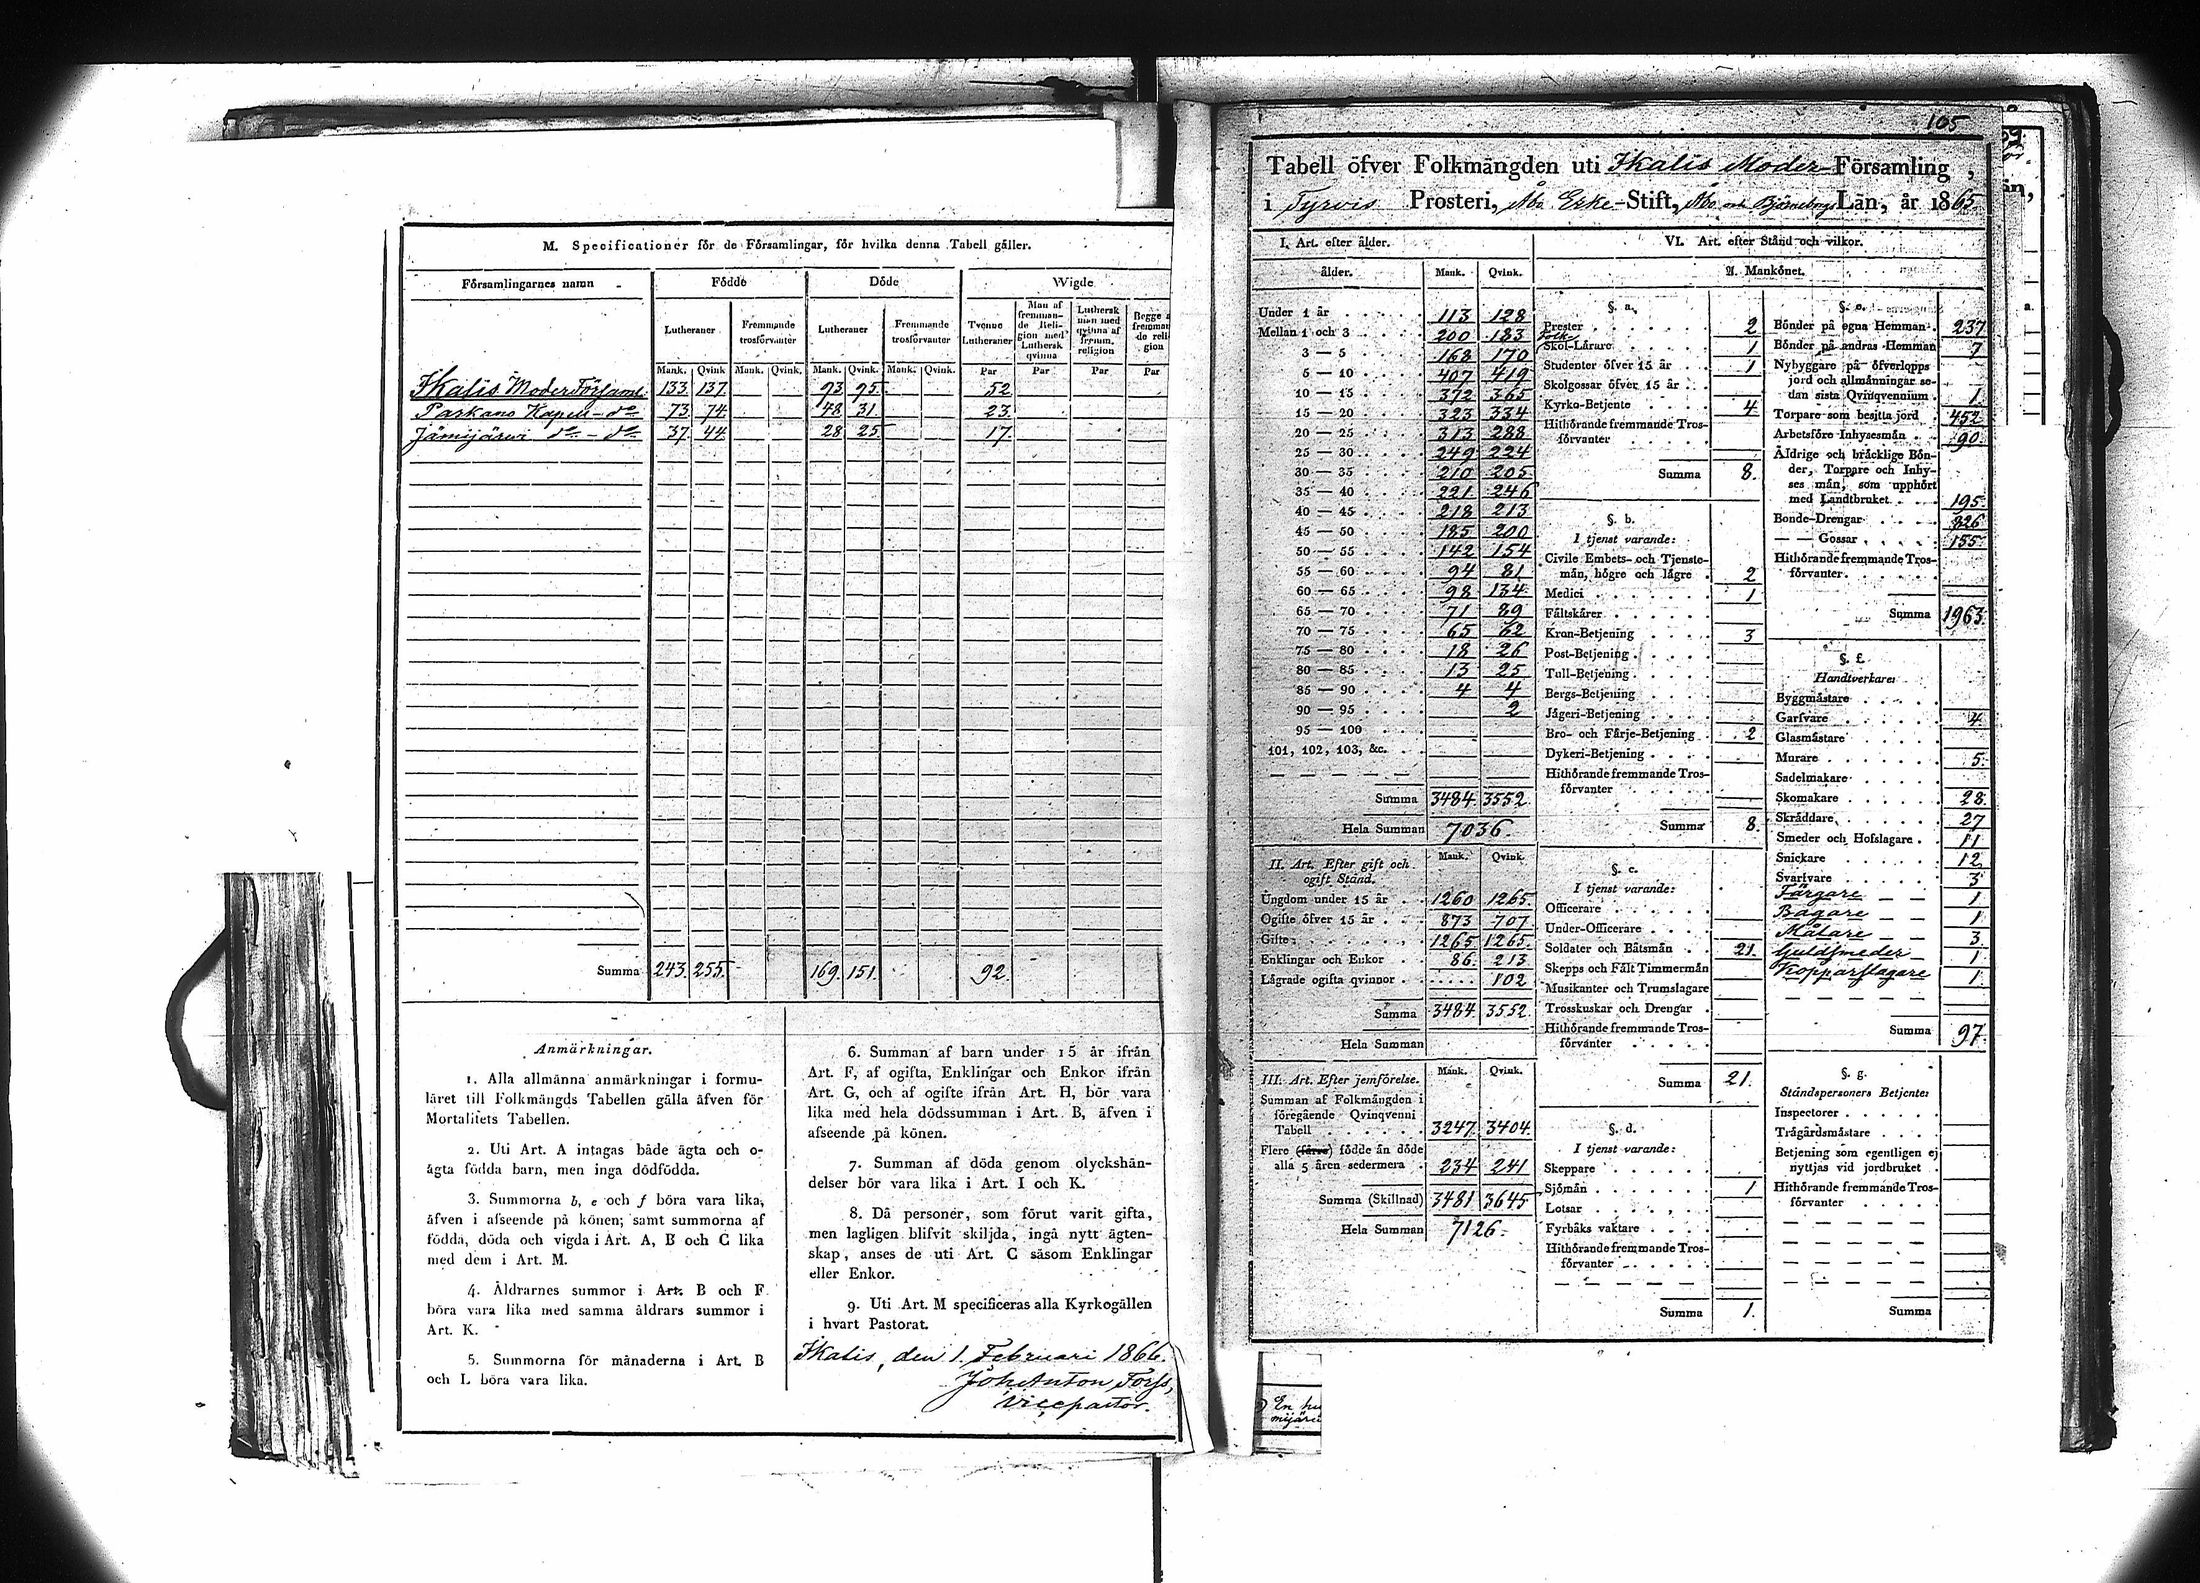 M. Specificationer för de Församlingar, för hvilka denna Tabell gäller.
Församlingarnes namn Födde Döde Wigde
Lutheraner Fremmande trosförvanter Lutheraner Fremmande trosförvanter Tvenne Lutheraner Man af fremmande Religion med Luthersk qvinna Luthersk man med qvinna af fremm. religion Begge fremmande religion
Mank. Qvink. Mank. Qvink. Mank. Qvink. Mank. Qvink. Par Par Par Par
Ikalis Moder Församl. 133. 137. 93 95. 52
Parkano Kapell - do 73 74 48 31. 23.
Jämijärwi do - do 37. 44 28 25. 17.
Summa 243. 255. 169. 151. 92.
Anmärkningar.
1. Alla allmänna anmärkningar i formu-
läret till Folkmängds Tabellen gälla äfven för
Mortalitets Tabellen.
2. Uti Art. A intagas både ägta och o-
ägta födda barn, men inga dödfödda.
3. Summorna b, e och f böra vara lika,
äfven i afseende på könen; samt summorna af
födda, döda och vigda i Art. A, B och C lika
med dem i Art. M.
4. Åldrarnes summor i Art. B och F
böra vara lika med samma åldrars summor i
Art. K.
5. Summorna för månaderna i Art. B
och L böra vara lika.
6. Summan af barn under 15 år ifrån
Art. F, af ogifta, Enklingar och Enkor ifrån
Art. G, och af ogifte ifrån Art. H, bör vara
lika med hela dödssumman i Art. B, äfven i
afseende på könen.
7. Summan af döda genom olyckshän-
delser bör vara lika i Art. I och K.
8. Då personer, som förut varit gifta,
men lagligen blifvit skiljda, ingå nytt ägten-
skap, anses de uti Art. C såsom Enklingar
eller Enkor.
9. Uti Art. M specificeras alla Kyrkogällen
i hvart Pastorat.
Ikalis, den 1. Februari 1866.
Joh Anton Forss,
Vicepastor.
105
Tabell öfver Folkmängden uti Ikalis Moder-Församling,
i Tyrvis Prosteri, Åbo Erke-Stift, Åbo och Björneborgs Län, år 1865.
I. Art. efter ålder.
ålder. Mank. Qvink.
Under 1 år 113 128
Mellan 1 och 3 200 183
3 — 5 168 170
5 — 10 407 419
10 — 15 372 365
15 — 20 323 334
20 — 25 313 288
25 — 30 249 224
30 — 35 210 205
35 — 40 221 246
40 — 45 218 213
45 — 50 185 200
50 — 55 142 154
55 — 60 94 81
60 — 65 98 134
65 — 70 71 89
70 — 75 65 62
75 — 80 18 26
80 — 85 13 25
85 — 90 4 4
90 — 95 2
95 — 100
101, 102, 103, &c.
Summa 3484. 3552.
Hela Summan 7036.
II. Art. Efter gift och
ogift Stånd. Mank. Qvink.
Ungdom under 15 år 1260 1265.
Ogifte öfver 15 år 873 707
Gifte 1265 1265.
Enklingar och Enkor 86 213
Lägrade ogifta qvinnor 102
Summa 3484 3552.
Hela Summan
III. Art. Efter jemförelse. Mank. Qvink.
Summan af Folkmängden i
föregående Qvinqvenni
Tabell 3247. 3404.
Flere (färre) födde än döde
alla 5 åren sedermera 234 241
Summa (Skillnad) 3481 3645
Hela Summan 7126.
VI. Art. efter Stånd och vilkor.
A. Mankönet.
§. a.
Prester 2
Folks
Skol-Lärare 1
Studenter öfver 15 år 1
Skolgossar öfver 15 år
Kyrko-Betjente 4
Hithörande fremmande Tros-
förvanter
Summa 8.
§. b.
I tjenst varande:
Civile Embets- och Tjenste-
män, högre och lägre 2
Medici 1
Fältskärer
Kron-Betjening 3
Post-Betjening
Tull-Betjening
Bergs-Betjening
Jägeri-Betjening
Bro- och Färje-Betjening 2
Dykeri-Betjening
Hithörande fremmande Tros-
förvanter
Summa 8.
§. c.
I tjenst varande:
Officerare
Under-Officerare
Soldater och Båtsmän 21.
Skepps och Fält Timmermän
Musikanter och Trumslagare
Trosskuskar och Drengar
Hithörande fremmande Tros-
förvanter
Summa 21.
§. d.
I tjenst varande:
Skeppare
Sjömän 1
Lotsar
Fyrbåks vaktare
Hithörande fremmande Tros-
förvanter
Summa 1.
§. e.
Bönder på egna Hemman 237
Bönder på andras Hemman 7
Nybyggare på öfverlopps
jord och allmänningar se-
dan sista Qvinqvennium 1
Torpare som besitta jord 452
Arbetsföre Inhysesmän 90.
Åldrige och bräcklige Bön-
der, Torpare och Inhy-
ses män, som upphört
med Landtbruket 195.
Bonde-Drengar 826
— — Gossar 155.
Hithörande fremmande Tros-
förvanter
Summa 1963.
§. f.
Handtverkare:
Byggmästare
Garfvare 4.
Glasmästare
Murare 5.
Sadelmakare
Skomakare 28.
Skräddare 27
Smeder och Hofslagare 11
Snickare 12
Svarfvare 3
Färgare 1
Bagare 1
Målare 3
Guldsmeder 1
Kopparslagare 1
Summa 97.
§. g.
Ståndspersoners Betjente:
Inspectorer
Trägårdsmästare
Betjening som egentligen ej
nyttjas vid jordbruket
Hithörande fremmande Tros-
förvanter
Summa
En hu
mijäru